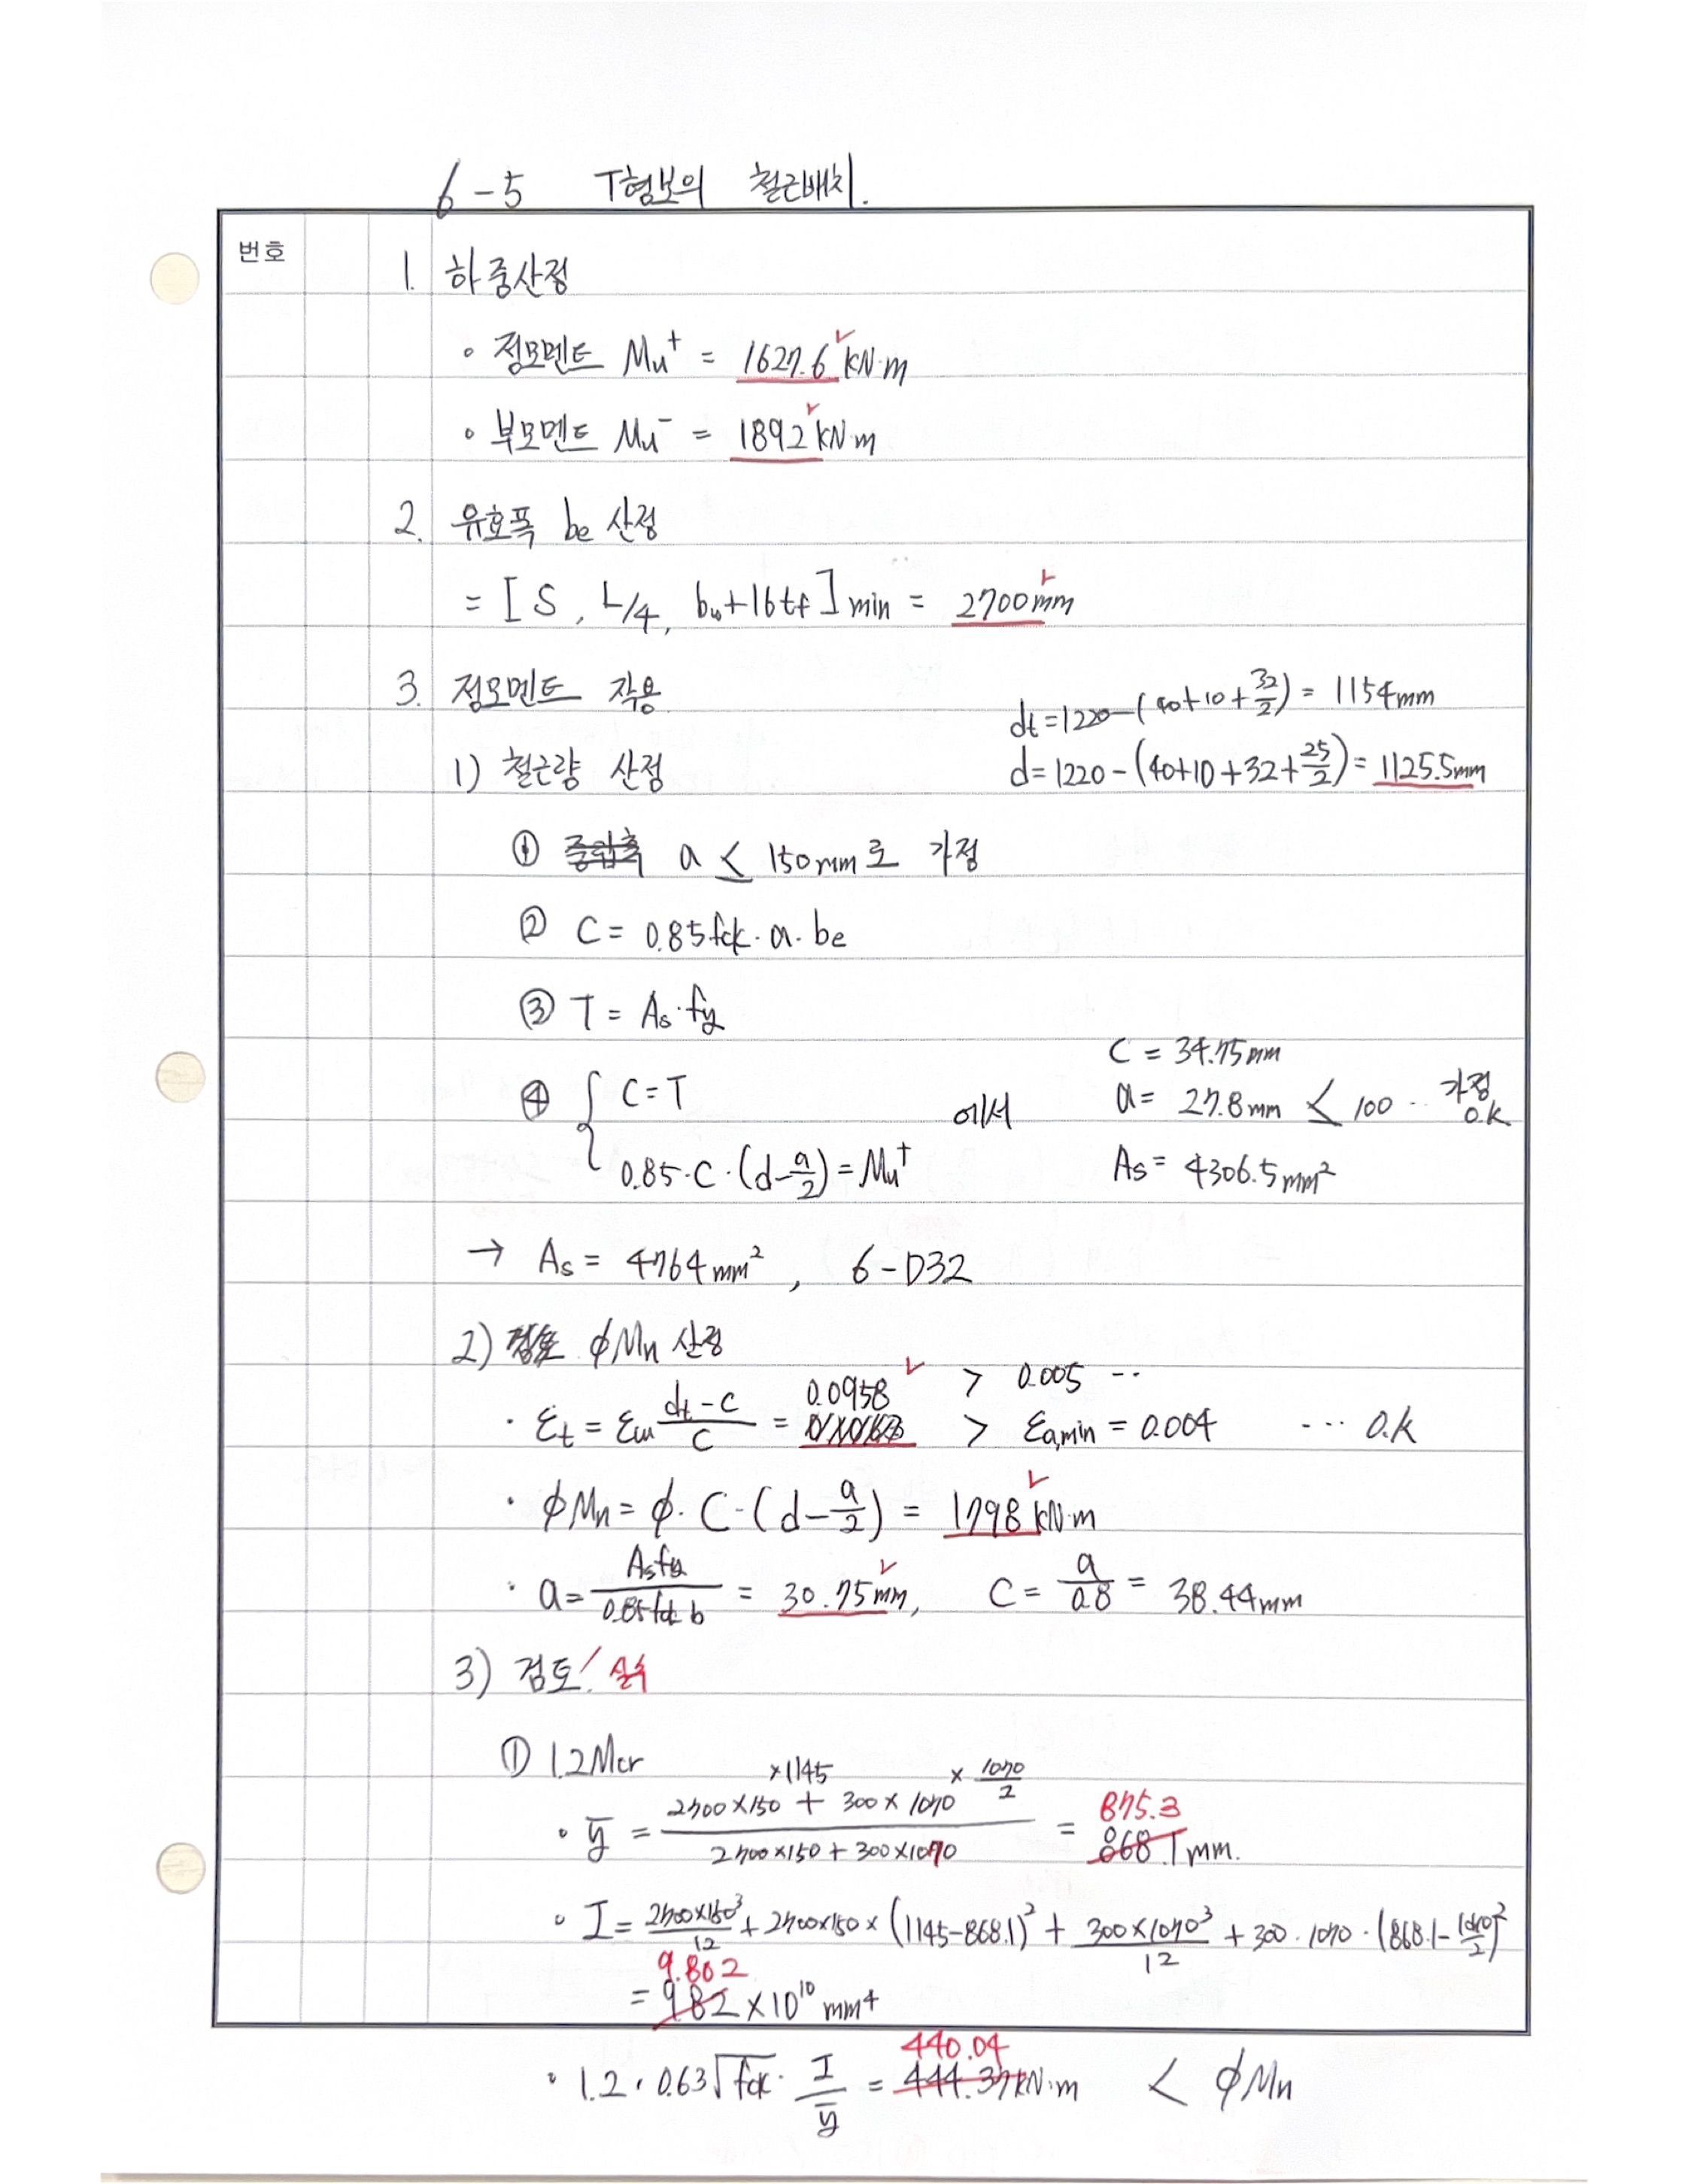 6-5 T형보의 철근배치.
번호
1. 하중산정
∘ 정모멘트 Mu⁺ = 1627.6 kN·m
∘ 부모멘트 Mu⁻ = 1892 kN·m
2. 유효폭 be 산정
= [ S, L/4, bw+16tf ] min = 2700mm
3. 정모멘트 작용
dt = 1220 - (40+10+32/2) = 1154mm
1) 철근량 산정
d = 1220 - (40+10+32+25/2) = 1125.5mm
① a ≤ 150mm로 가정
② C = 0.85fck·a·be
③ T = As·fy
④ { C = T
0.85·C·(d-a/2) = Mu⁺
에서
C = 34.75mm
a = 27.8mm ≤ 100 ·· 가정 O.K.
As = 4306.5mm²
→ As = 4764mm², 6-D32
2) ϕMn 산정
· εt = εcu (dt-c)/c = 0.0958 > 0.005 ··
> εa,min = 0.004 ··· O.K
· ϕMn = ϕ·C·(d-a/2) = 1798 kN·m
· a = Asfy/0.85fck b = 30.75mm, C = a/0.8 = 38.44mm
3) 검토! 실수
① 1.2Mcr
∘ y̅ = (2700×150×1145 + 300×1070×1070/2)/(2700×150+300×1070) = 875.3 868.1mm.
∘ I = 2700×150³/12 + 2700×150×(1145-868.1)² + 300×1070³/12 + 300·1070·(868.1-1070/2)²
= 9.802 9.82 ×10¹⁰ mm4
∘ 1.2·0.63√fck · I/y̅ = 440.04 444.37kN·m < ϕMn